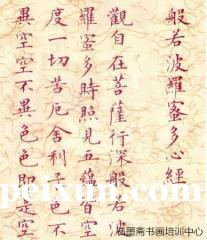 般若波羅蜜多心經
觀自在菩薩行深般若波
羅蜜多時照見五蘊皆空
度一切苦厄舍利子色不
異空空不異色色即是空
墨斋书画培训中心